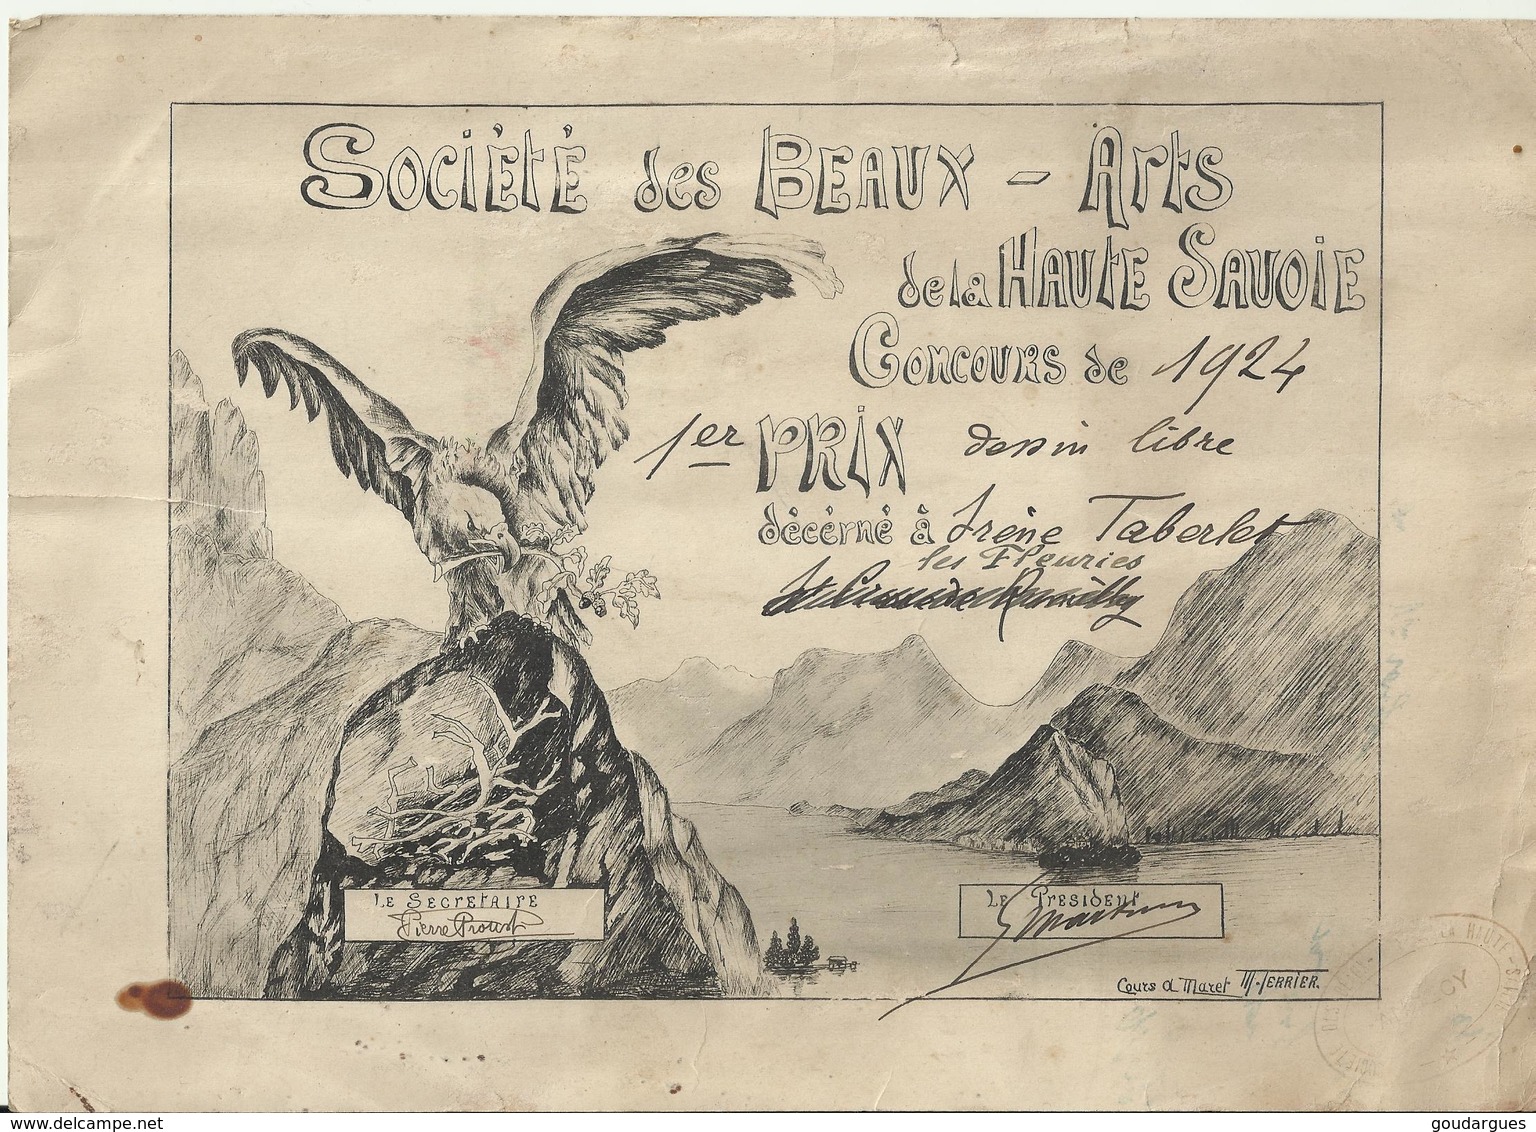 Société des Beaux-Arts
de la Haute Savoie
Concours de 1924
1er Prix dessin libre
décérné à Irène Taberlet
les Fleuries
Le Secretaire
Pierre Proust
Le President
Cours A Maret M. Terrier.
www.delcampe.net
goudargues